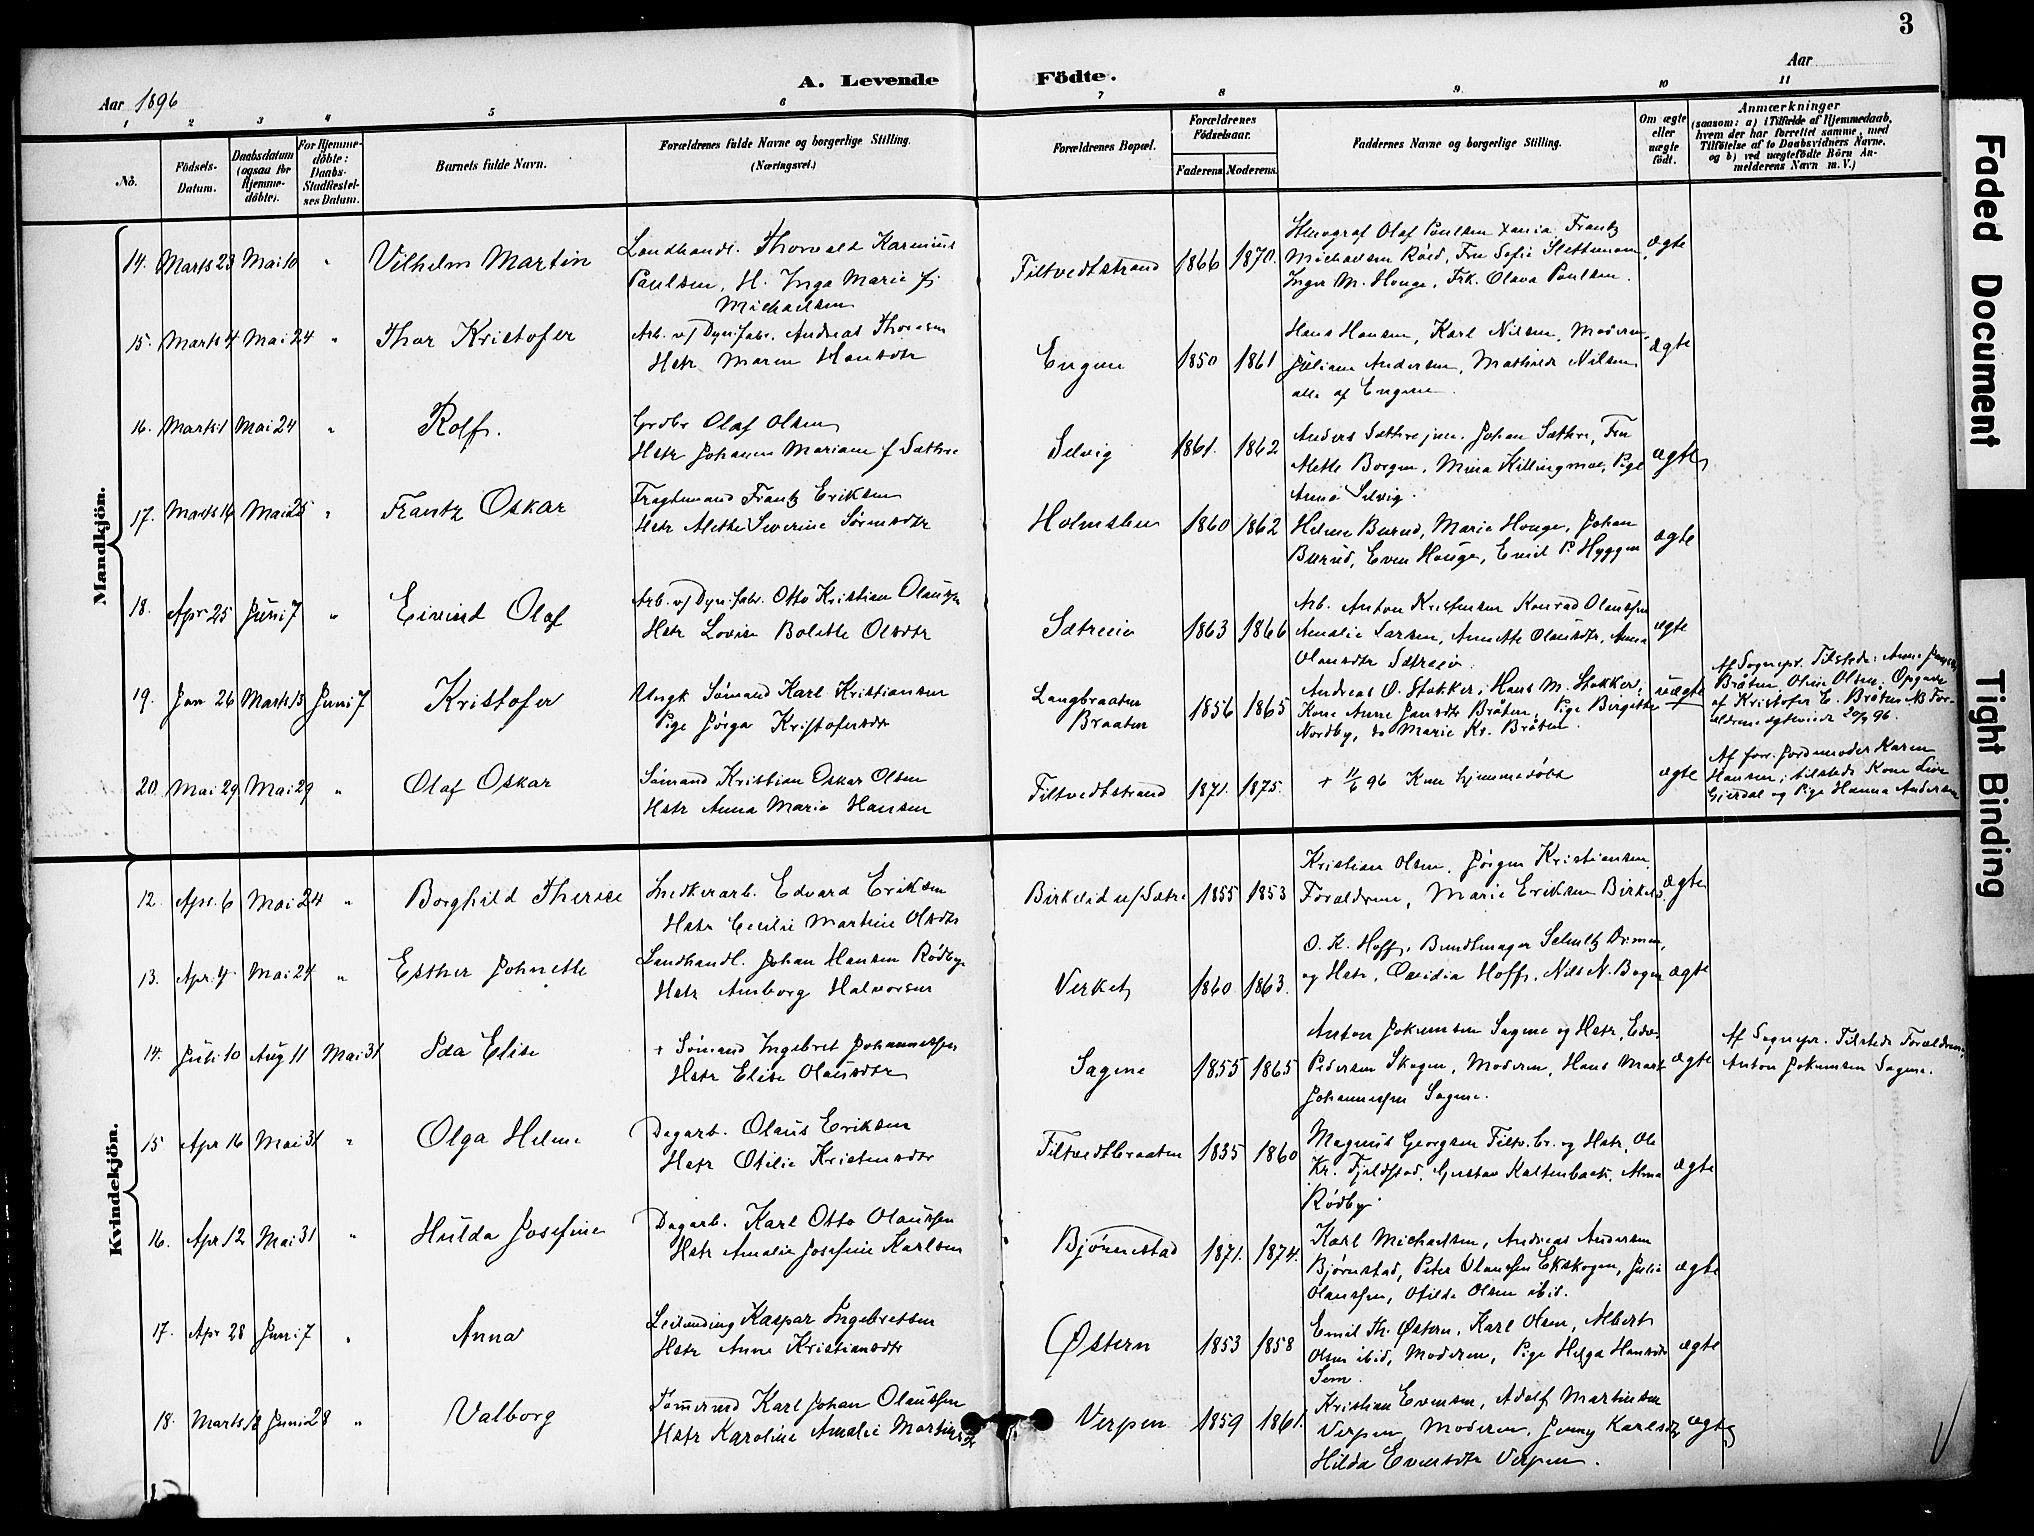 3
A. Levende Födte.
Aar 1896
Aar
1 2 3 4 5 6 7 8 9 10 11
No.
Födsels-Datum.
Daabsdatum (ogsaa for Hjemme-döbte).
For Hjemme-döbte: Daabs-Stadfæstel-ses Datum.
Barnets fulde Navn.
Forældrenes fulde Navne og borgerlige Stilling.
(Næringsvei.)
Forældrenes Bopæl.
Forældrenes Födselsaar.
Faderens Moderens
Faddernes Navne og borgerlige Stilling.
Om ægte eller uægte födt.
Anmærkninger
(saasom: a) i Tilfælde af Hjemmedaab, hvem der har forrettet samme, med Tilföielse af to Daabsvidners Navne, og b) ved uægtefödte Börn An-melderens Navn m. V.)
Mandkjön.
14. Marts 23 Mai 10 " Vilhelm Martin
Landhandl. Thorvald Karinius
Paulsen, H. Inga Marie f.
Michaelsen
Filtvedtstrand 1866 1870.
Olaf Paulsen Xania Frantz
Michaelsen Röed, Fru Sofie
Inger M. Houge, Frk. Olava Paulsen.
ægte
15. Marts 4 Mai 24 " Thor Kristofer
Arb. v/ Dyn.fabr. Andreas Thoresen
Hstr Maren Hansdtr
Engene 1850 1861
Hans Hansen, Karl Nilsen, Moderen,
Juliane Andersen, Mathilde Nilsen
alle af Engene.
ægte
16. Marts 1 Mai 24 " Rolf.
Grdbr Olaf Olsen
Hstr Johanne Mariane f Sæthre
Selvig 1861. 1862
Anders Sæthre jun. Johan Sæthre, Fru
Alette Borgen, Mina Killingmoe, Pige
Anna Selvig.
ægte
17. Marts 14 Mai 25 " Frantz Oskar
Fragtemand Frantz Eriksen
Hstr Alethe Severine Sörensdtr
Holmsbu 1860 1862
Helene Burud, Marie Houge, Johan
Burud, Even Houge, Emil P. Hyggen
ægte
18. Apr 25 Juni 7 " Eivind Olaf
Arb. v/ Dyn.fabr. Otto Kristian Olaussen
Hstr Lovise Bolette Olsdtr
Sætreeie 1863 1866
Arb. Anton Kristensen Konrad Olaussen
Amalie Larsen, Annette Olausdtr, Anna
Olausdtr Sætreeie.
ægte
19. Jan 26 Marts 15 Juni 7 Kristofer
Ungk Sömand Karl Kristiansen
Pige Jörga Kristofersdtr
Langbraaten
Braaten 1856 1865
Andreas O. Stokker, Hans M. Stokker,
Kone Anne Jansdtr Bråten, Pige Birgitte
Nordby, do Marie Kr. Bråten.
uægte
Af Sognepr. Tilstede: Anne
Bråten Oline Olsen. Opgave
af Kristofer E. Bråten NB For-
ældrene ægteviede 20/9 96.
20. Mai 29 Mai 29 " Olaf Oskar
Sömand Kristian Oskar Olsen
Hstr Anna Marie Hansen
Filtvedtstrand 1871. 1875.
+ 11/6 96 Kun hjemmedöbt
ægte
Af forr. Jordmoder Karen
Hansen; tilstede Kone Live
Gjerdal og Pige Hanna Andersen
Kvindekjön.
12. Apr. 6 Mai 24 " Borghild Therese
Snedkerarb. Edvard Eriksen
Hstr Cecilie Martine Olsdtr
Birkelid u/ Sætre 1855 1853
Kristian Olsen, Jörgen Kristiansen
Forældrene, Marie Eriksen Birkelid.
ægte
13. Apr. 4 Mai 24 " Esther Johnette
Landhandl. Johan Hansen Rödby
Hstr Amborg Halvorsen
Verket 1860 1863.
O. K. Hoff, Bundtmager Schultz Drmen,
og Hstr, Ovidia Hoff, Nils N. Bogen
ægte
14. Juli 10 Aug 11 Mai 31 Ida Elise
+ Sömand Ingebret Johannessen
Hstr Elise Olausdtr
Sagene 1855 1865
Anton Jokumsen Sagene og Hstr,
Pedersen Skogen, Moderen, Hans Mart
Johannessen Sagene.
ægte
Af Sognepr. Tilstede Forældrene,
Anton Jokumsen Sagene.
15 Apr 16 Mai 31 " Olga Helene
Dagarb. Olaus Eriksen
Hstr Otilie Kristensdtr
Filtvedtbraaten 1855 1860
Magnus Georgsen Filtv.br. og Hstr, Ole
Kr. Fjeldstad, Gustav Kaltenback, Alma
Rödby.
ægte
16. Apr 12 Mai 31 " Hulda Josefine
Dagarb. Karl Otto Olaussen
Hstr Amalie Josefine Karlsen
Björnestad 1871. 1874.
Karl Michaelsen, Andreas Andersen
Björnstad, Peter Olaussen Ekskogen, Julie
Olaussen, Otilde Olsen ibid.
ægte
17. Apr 28 Juni 7 " Anna
Leilænding Kaspar Ingebretsen
Hstr Anne Kristiansdtr
Østern 1853 1858
Emil Th. Østern, Karl Olsen, Albert
Olsen ibid, Moderen, Pige Helga Hansdtr
Sem.
ægte
18. Marts 18 Juni 28 " Valborg
Tömrmd Karl Johan Olaussen
Hstr Karoline Amalie Martinsdtr
Verpen 1859 1861.
Kristian Evensen, Adolf Martinsen
Verpen, Moderen, Jenny Karlsdtr,
Hilda Evensdtr Verpen.
ægte
Faded Document
Tight Binding